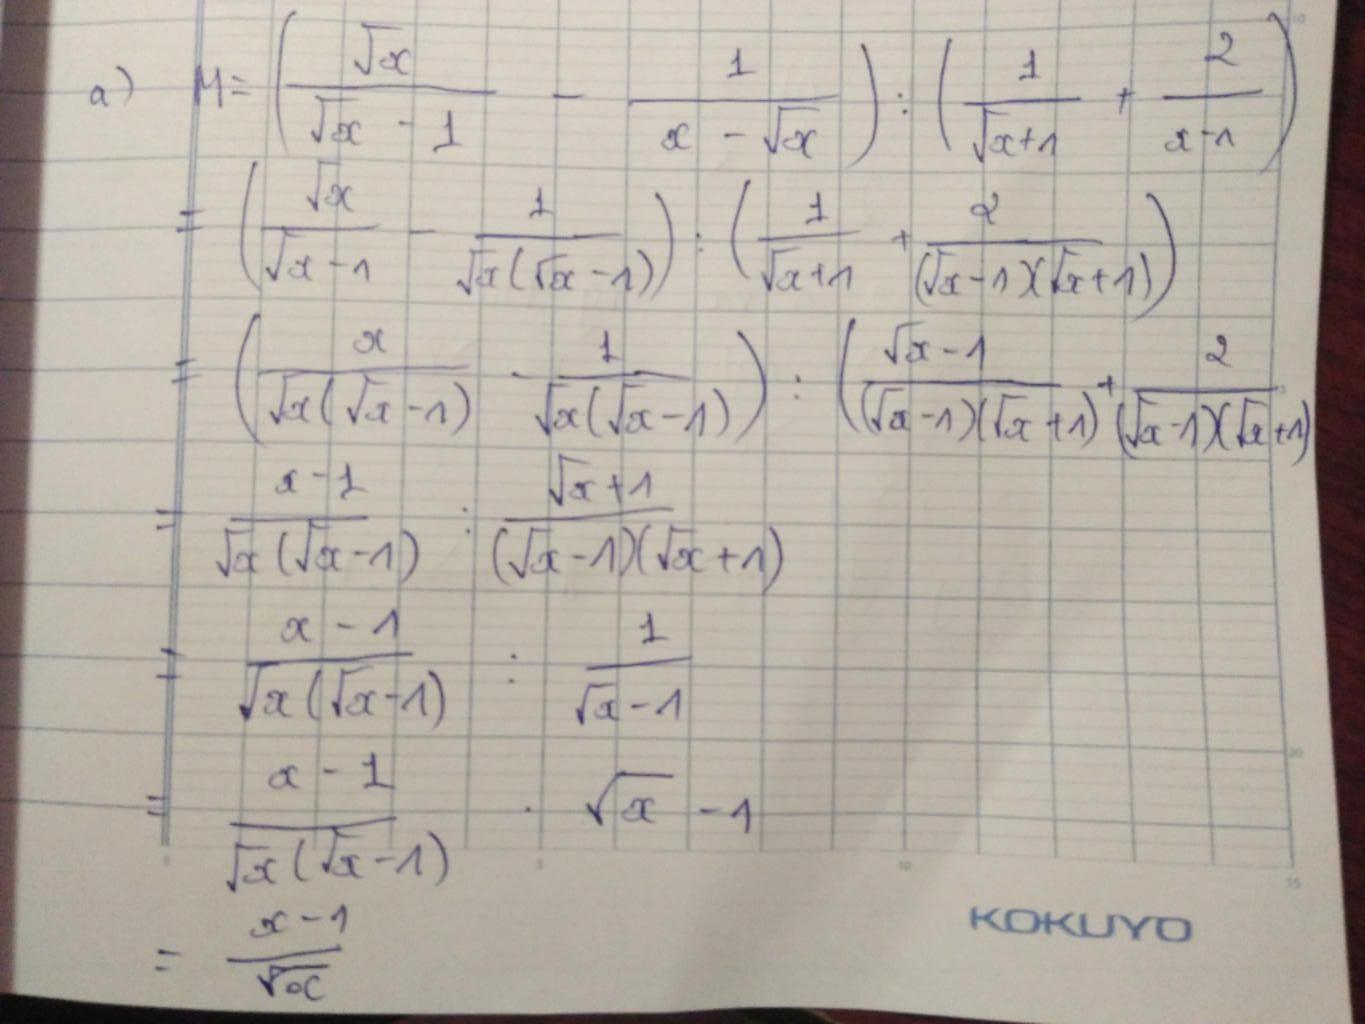 a) M = (√x/(√x - 1) - 1/(x - √x)) : (1/(√x+1) + 2/(x-1))
= (√x/(√x-1) - 1/(√x(√x-1))) : (1/(√x+1) + 2/((√x-1)(√x+1)))
= (x/(√x(√x-1)) - 1/(√x(√x-1))) : ((√x-1)/((√x-1)(√x+1)) + 2/((√x-1)(√x+1))
= (x-1)/(√x(√x-1)) : (√x+1)/((√x-1)(√x+1))
= (x-1)/(√x(√x-1)) : 1/(√x-1)
= (x-1)/(√x(√x-1)) . √x - 1
= (x-1)/√x
10
5
20
0 5 10 15
KOKUYO